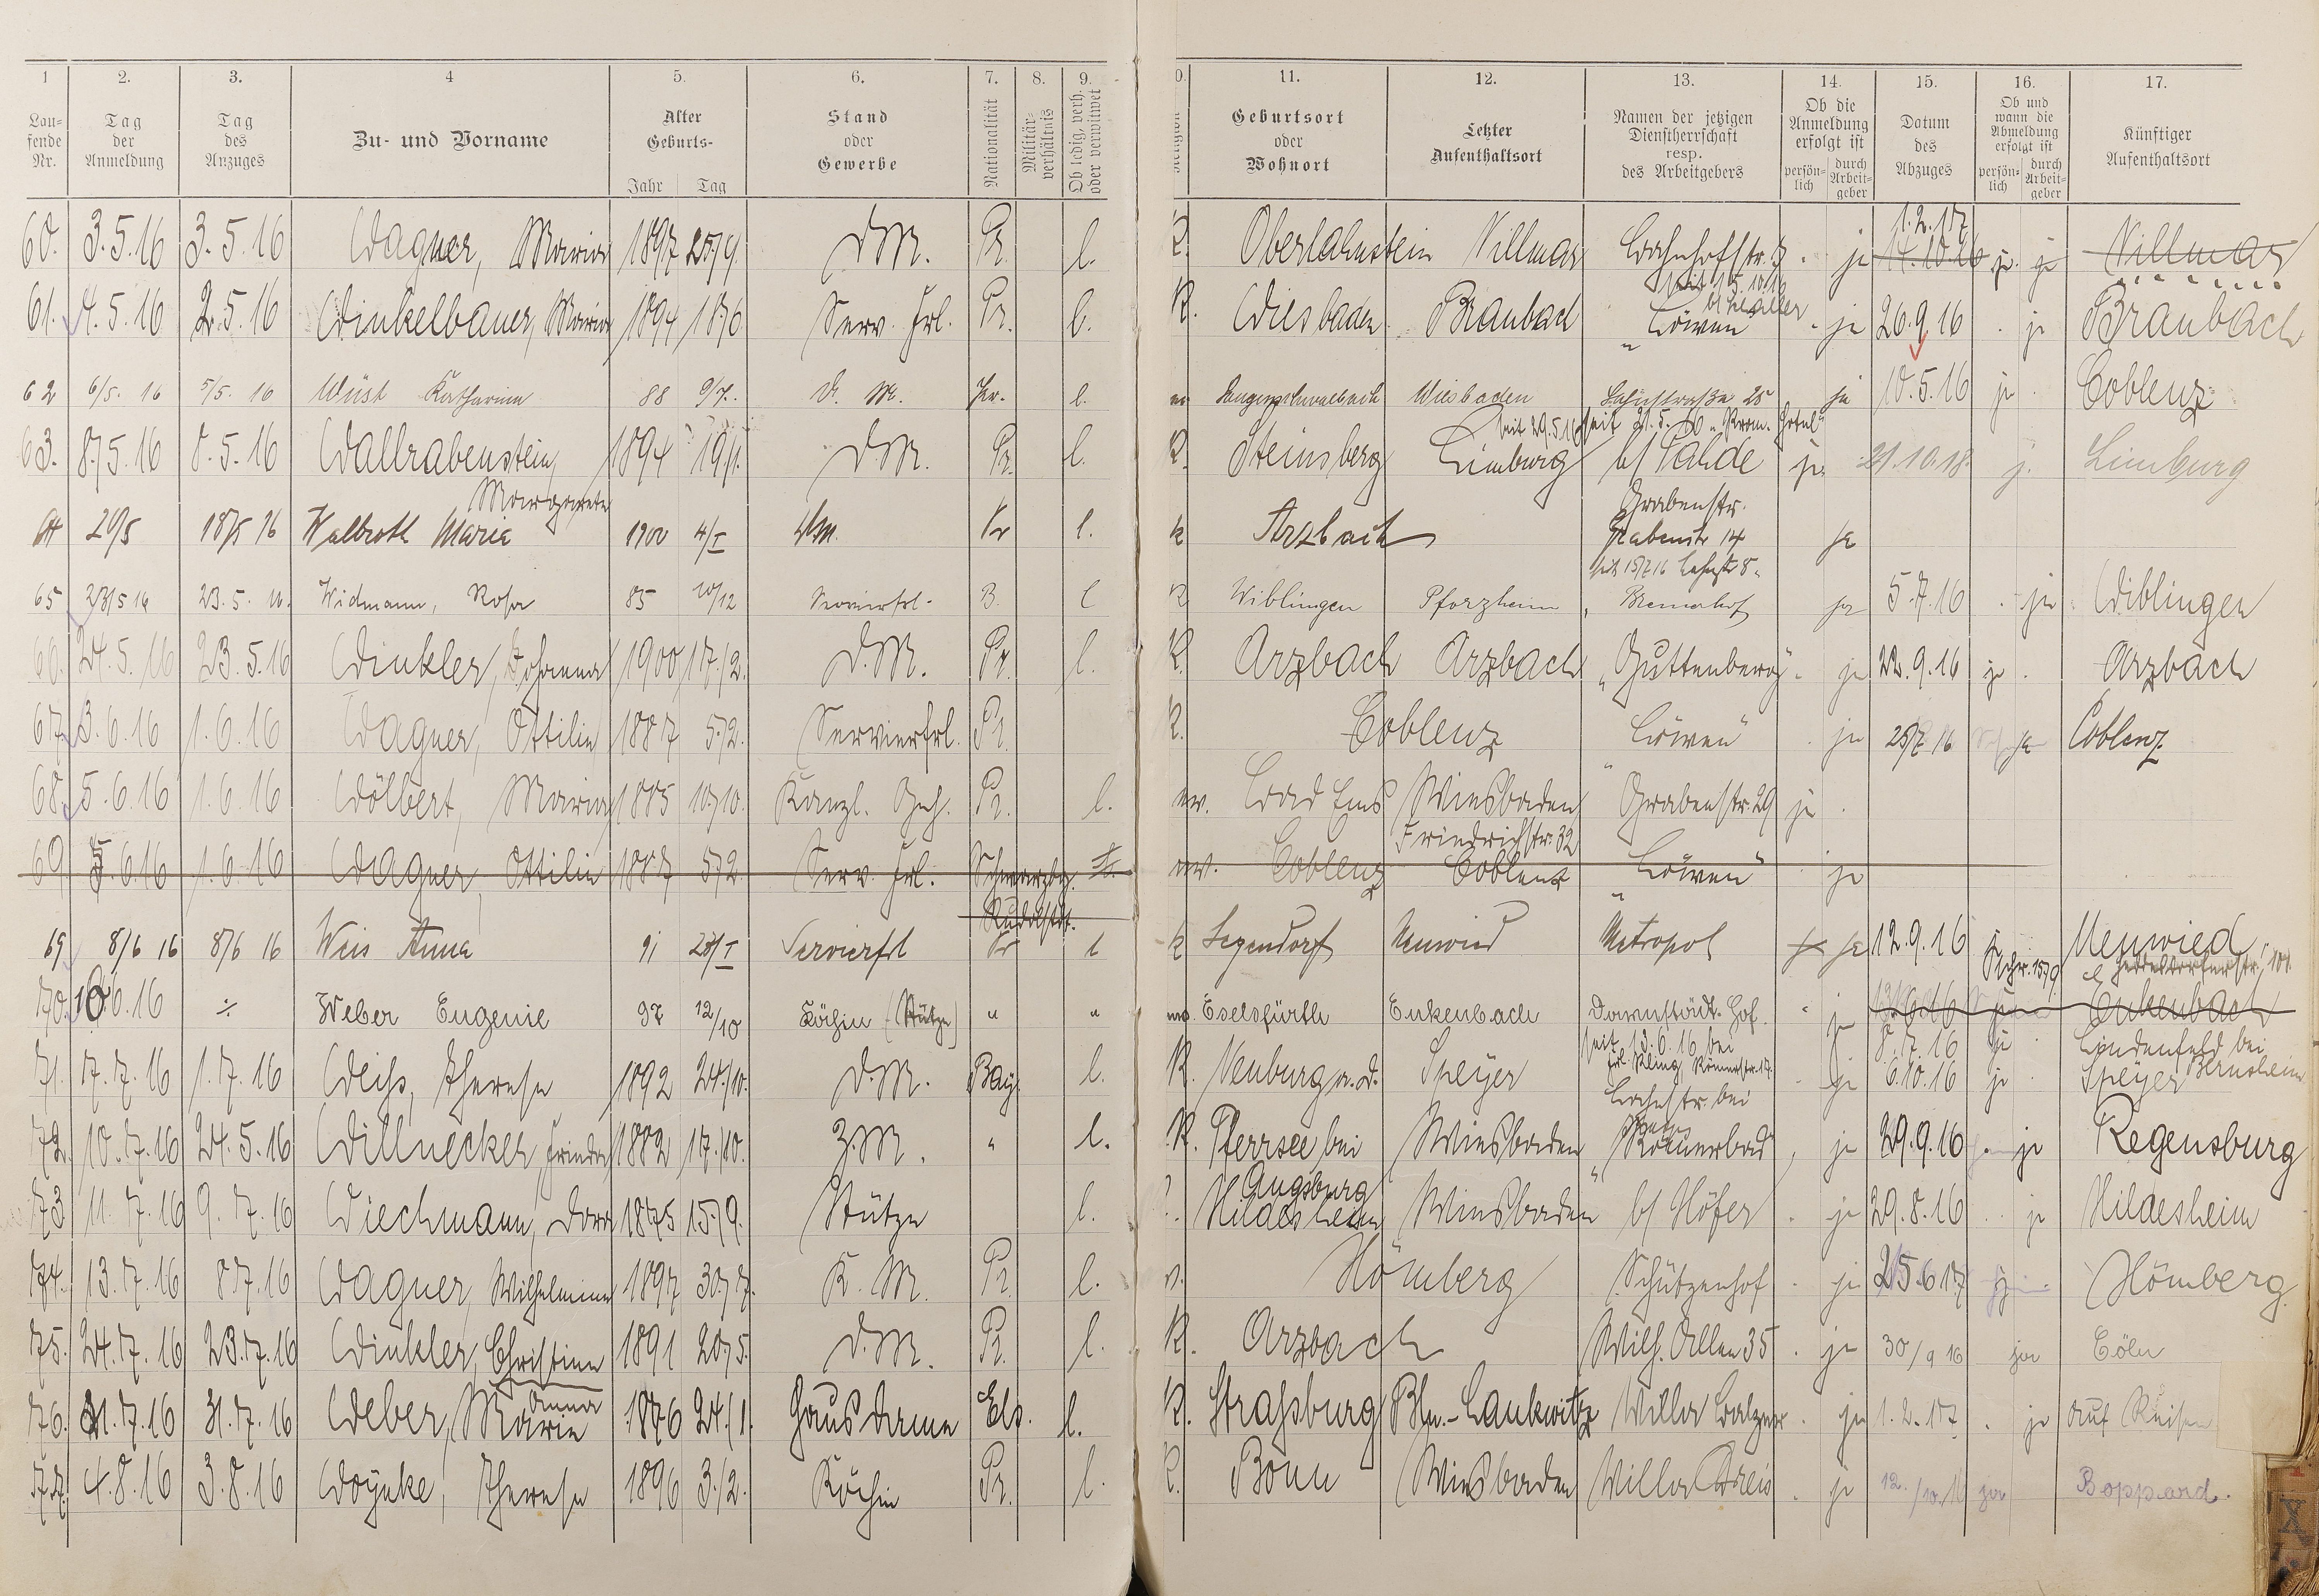 1 2. 3. 4 5. 6. 7. 8. 9. 0. 11. 12. 13. 14. 15. 16. 17.
Lau-
fende
Nr.
Tag
der
Anmeldung
Tag
des
Anzuges
Zu- und Vorname
Alter
Geburts-
Jahr Tag
Stand
oder
Gewerbe
Nationalität
Militär-
verhältnis
Ob ledig, verh.
oder verwitwet
Geburtsort
oder
Wohnort
Letzter
Aufenthaltsort
Namen der jetzigen
Dienstherrschaft
resp.
des Arbeitgebers
Ob die
Anmeldung
erfolgt ist
persön-
lich
durch
Arbeit-
geber
Datum
des
Abzuges
Ob und
wann die
Abmeldung
erfolgt ist
persön-
lich
durch
Arbeit-
geber
Künftiger
Aufenthaltsort
1.2.17
60. 3.5.16 3.5.16 Wagner, Maria 1897 25/9. D.M. Pr. l. K. Oberlahnstein Villmar Bahnhofstr. 3 ja 14.10.16 ja ja Villmar
seit 15.10.16
b/ Haller
61. 4.5.16 2.5.16 Winkelbauer, Maria 1894 18/6 Serv. Frl. Pr. l. K. Wiesbaden Braubach „Löwen" ja 26.9.16 ja Braubach
62 6/5. 16 5/5. 16 Wüst Katharina 88 9/7. D. M. Pr. l. Langenschwalbach Wiesbaden Lahnstraße 25 ja 10.5.16 ja Coblenz
seit 29.5.16 seit 21.5.16 „Prom. Hotel"
63. 8.5.16 8.5.16 Wallrabenstein, 1894 19./1. D.M. Pr. l. K. Steinsberg Limburg b/ Sahde ja 21.10.18. j. Limburg
Margareta
Grabenstr.
64 20/5 18/5 16 Walbroth Maria 1900 4/I DM. Pr l. k Arzbach Grabenstr 14 ja
seit 15/7 16 Lahnstr 8.
65 23/5 16 23.5.16. Widmann, Rosa 85 10/12 Servierfrl. B. l K Wiblingen Pforzheim Bremerhof ja 5.7.16 ja Wiblingen
66. 24.5.16 23.5.16 Winkler, Johanna 1900 17./2. D.M. Pr. l. K. Arzbach Arzbach „Guttenberg" ja 22.9.16 ja Arzbach
67. 3.6.16 1.6.16 Wagner, Ottilie 1887 5./2. Servierfrl. Pr. K. Coblenz „Löwen" ja 25/7 16 ja Coblenz.
68. 5.6.16 1.6.16 Wölbert, Maria 1885 10./10. Kanzl. Geh. Pr. l. ev. Bad Ems Wiesbaden Grabenstr. 29 ja
Friedrichstr. 32
69 5.6.16 1.6.16 Wagner, Ottilie 1887 5/2 Serv. Frl. Schwarzbg. ev. Coblenz Coblenz „Löwen" ja
Rudolstdt.
69 8/6 16 8/6 16 Weis Anna 91 28/I Servierfrl Pr l k Segendorf Neuwied Metropol ja 12.9.16 Neuwied
70. 10.6.16 ./. Weber Eugenie 97 12/10 Köchin (Stütze) " " Eselsfürth Enkenbach Darmstädt. Hof. ja 13.6.16 Enkenbach
seit 13.6.16 bei
Frl. Kling, Römerstr. 17. 8.7.16 ja Lindenfeld bei
Bensheim
71. 17.7.16 1.7.16 Weiß, Therese 1892 24./10. D.M. Bay. l. K. Neuburg a.d. Speyer ja 6.10.16 ja Speyer
Bahnstr. bei
72. 10.7.16 24.5.16 Willnecker, Frieda 1882 17./10. Z.M. " l. K. Pferrsee bei Wiesbaden „Römerbad" ja 29.9.16 ja Regensburg
Augsburg
73 11.7.16 9.7.16 Wiechmann, Dora 1875 15./9. Stütze l. Hildesheim Wiesbaden b/ Höfer ja 29.8.16 ja Hildesheim
74. 13.7.16 8.7.16 Wagner, Wilhelmine 1897 30./7. K. M. Pr. l. Hömberg Schützenhof ja 25.6.17 Hömberg
75. 24.7.16 23.7.16 Winkler, Christine 1891 20./5. D.M. Pr. l. K. Arzbach Wilh. Allee 35 ja 30/9 16 ja Cöln
Anna
76. 31.7.16 31.7.16 Weber, Marie 1876 24./1. Hausdame Els. l. K. Straßburg Bln.-Lankwitz Villa Balzer ja 1.2.17 ja auf Reisen
77. 4.8.16 3.8.16 Woynke, Therese 1896 3./2. Köchin Pr. l. K. Bonn Wiesbaden Villa Dreis ja 12./10.16 ja Boppard.